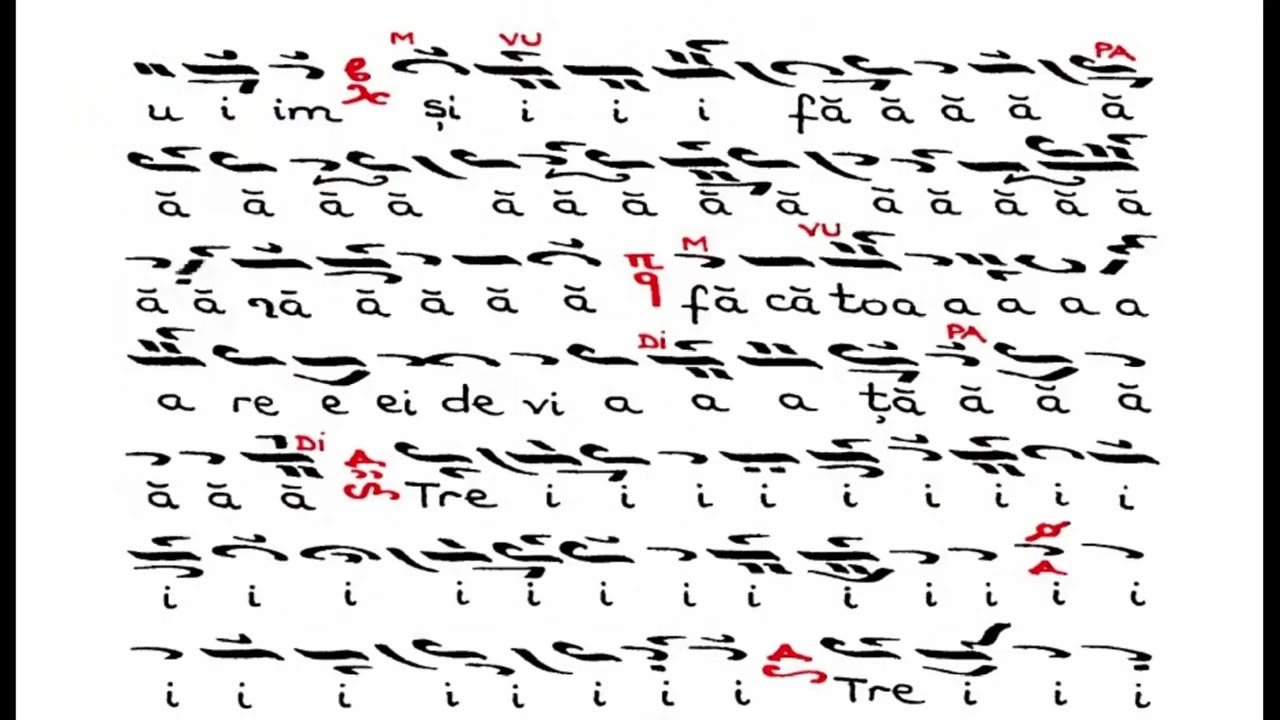 M VU PA
u i im și i i i fă ă ă ă ă
ă ă ă ă ă ă ă ă ă ă ă ă ă ă
M VU
ă ă ră ă ă ă ă fă că toa a a a a
Di PA
a re e ei de vi a a a ță ă ă ă
Di
ă ă ă Tre i i i i i i i i i
i i i i i i i i i i i i i
i i i i i i i i Tre i i i